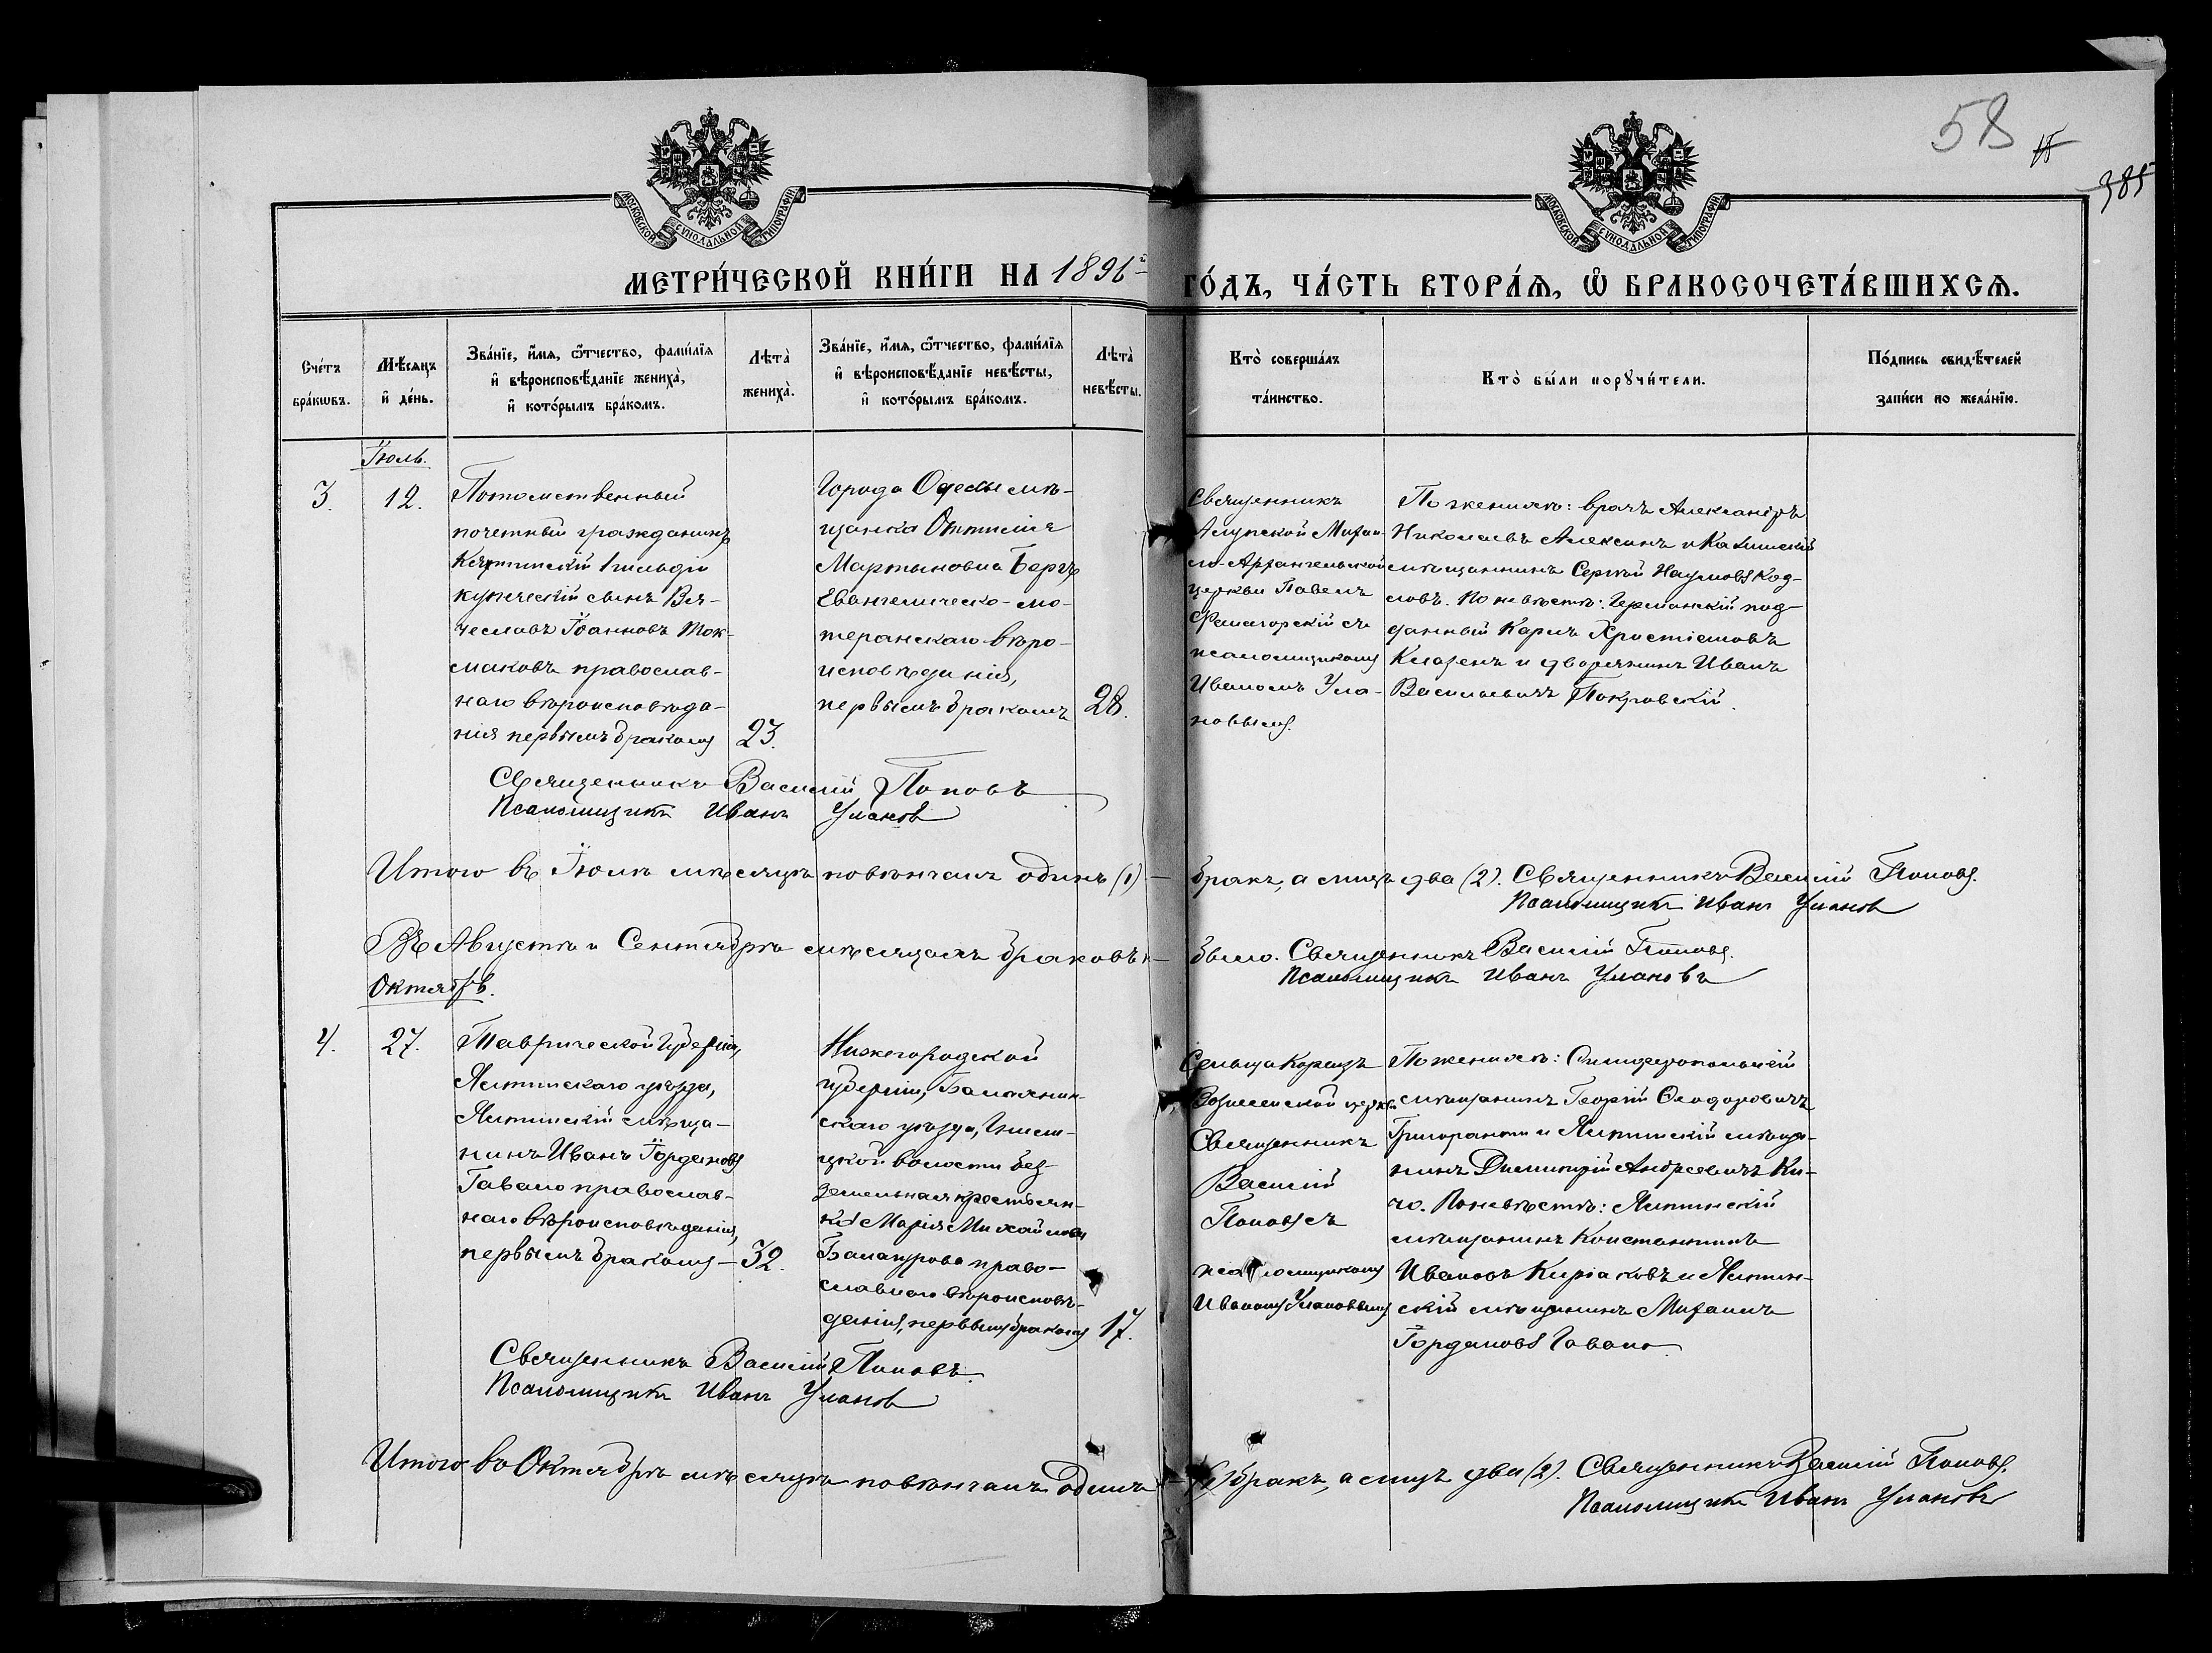 58
385
МОСКОВСКОЙ СѴНОДАЛЬНОЙ ТИПОГРАФІИ
МОСКОВСКОЙ СѴНОДАЛЬНОЙ ТИПОГРАФІИ
МЕТРИ́ЧЕСКОЙ КНИ́ГИ НА 1896й ГО́ДЪ, ЧА́СТЬ ВТОРА́Ѧ, Ѽ БРАКОСОЧЕТА́ВШИХСѦ.
Сче́тъ
бра́кѡвъ.
Мѣ́сѧцъ
и҆ де́нь.
Зва́нїе, и҆́мѧ, ѻ҆́тчество, фами́лїѧ
и҆ вѣроисповѣ́данїе жениха̀,
и҆ кото́рымъ бра́комъ.
Лѣта̀
жениха̀.
Зва́нїе, и҆́мѧ, ѻ҆́тчество, фами́лїѧ
и҆ вѣроисповѣ́данїе невѣ́сты,
и҆ кото́рымъ бра́комъ.
Лѣта̀
невѣ́сты.
Кто̀ соверша́лъ
та́инство.
Кто̀ бы́ли порꙋчи́тели.
По́дпись свидѣ́телей
за́писи по жела́нїю.
Іюль.
3.
12.
Потомственный
почетный гражданинъ
1 гильдіи
купеческій сынъ Вя-
чеславъ Іоанновъ Ток-
маковъ православ-
наго вѣроисповѣда-
нія первымъ бракомъ
23.
Города Одессы мѣ-
щанка Оттилія
Мартыновна Бергъ
Евангелическо-лю-
теранскаго вѣро-
исповѣданія,
первымъ бракомъ
28.
Священникъ
Алупской Михаи-
ло-Архангельской
церкви Павелъ
съ
псаломщикомъ
Иваномъ Ула-
новымъ.
По женихѣ: врачъ Александръ
Николаевъ Алексинъ и
мѣщанинъ Сергѣй Наумовъ Коз-
ловъ. По невѣстѣ: Германскій под-
данный Карлъ Христіановъ
и дворянинъ Иванъ
Васильевичъ Покровскій.
Священникъ Василій Поповъ
Псаломщикъ Иванъ Улановъ
Итого въ Іюлѣ мѣсяцѣ повѣнчанъ одинъ (1) бракъ, а лицъ два (2). Священникъ Василій Поповъ.
Псаломщикъ Иванъ Улановъ
Въ Августѣ и Сентябрѣ мѣсяцахъ браковъ не было. Священникъ Василій Поповъ.
Псаломщикъ Иванъ Улановъ
Октябрь.
4.
27.
Таврической губерніи,
Ялтинскаго уѣзда,
Ялтинскій мѣща-
нинъ Иванъ Іордановъ
Гавало православ-
наго вѣроисповѣданія,
первымъ бракомъ
32.
Нижегородской
губерніи, Балахнин-
скаго уѣзда,
волости без-
земельная крестьян-
ка Марія Михайлова
право-
славнаго вѣроисповѣ-
данія, первымъ бракомъ
17.
Сельца Кореизъ
Вознесенской церкви
Священникъ
Василій
Поповъ съ
псаломщикомъ
Иваномъ Улановымъ
По женихѣ: Симферопольскій
мѣщанинъ Георгій Ѳеодоровичъ
и Ялтинскій мѣща-
нинъ Димитрій Андреевичъ Ки-
чо. По невѣстѣ: Ялтинскій
мѣщанинъ Константинъ
Ивановъ Киріаковъ и Ялтин-
скій мѣщанинъ Михаилъ
Іордановъ Гавало.
Священникъ Василій Поповъ.
Псаломщикъ Иванъ Улановъ
Итого въ Октябрѣ мѣсяцѣ повѣнчанъ одинъ (1) бракъ, а лицъ два (2). Священникъ Василій Поповъ.
Псаломщикъ Иванъ Улановъ